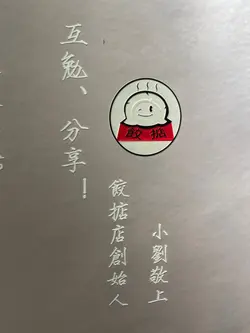 互勉、分享！
餃掂
餃掂店創始人
小劉敬上